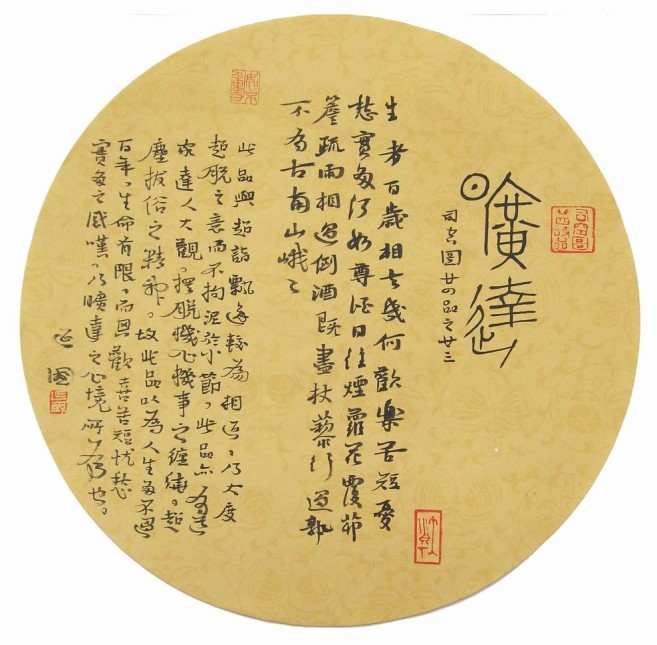 曠達
司空圖廿四品之廿三
生者百歲相去幾何歡樂苦短憂
愁實多何如尊酒日往煙蘿花覆茆
簷疏雨相過倒酒既盡杖藜行過孰
不有古南山峨々
此品與超詣飄逸較為相近,乃大度
超脫之意而不拘泥於小節,此品亦為
達人大觀,擺脫機心機事之纏縛。超
塵拔俗之精神。故此品以為人生多不過
百年,生命有限,而且歡喜苦短憂愁
實多之感嘆,乃曠達之心境所為也。
國
司空圖廿四詩品